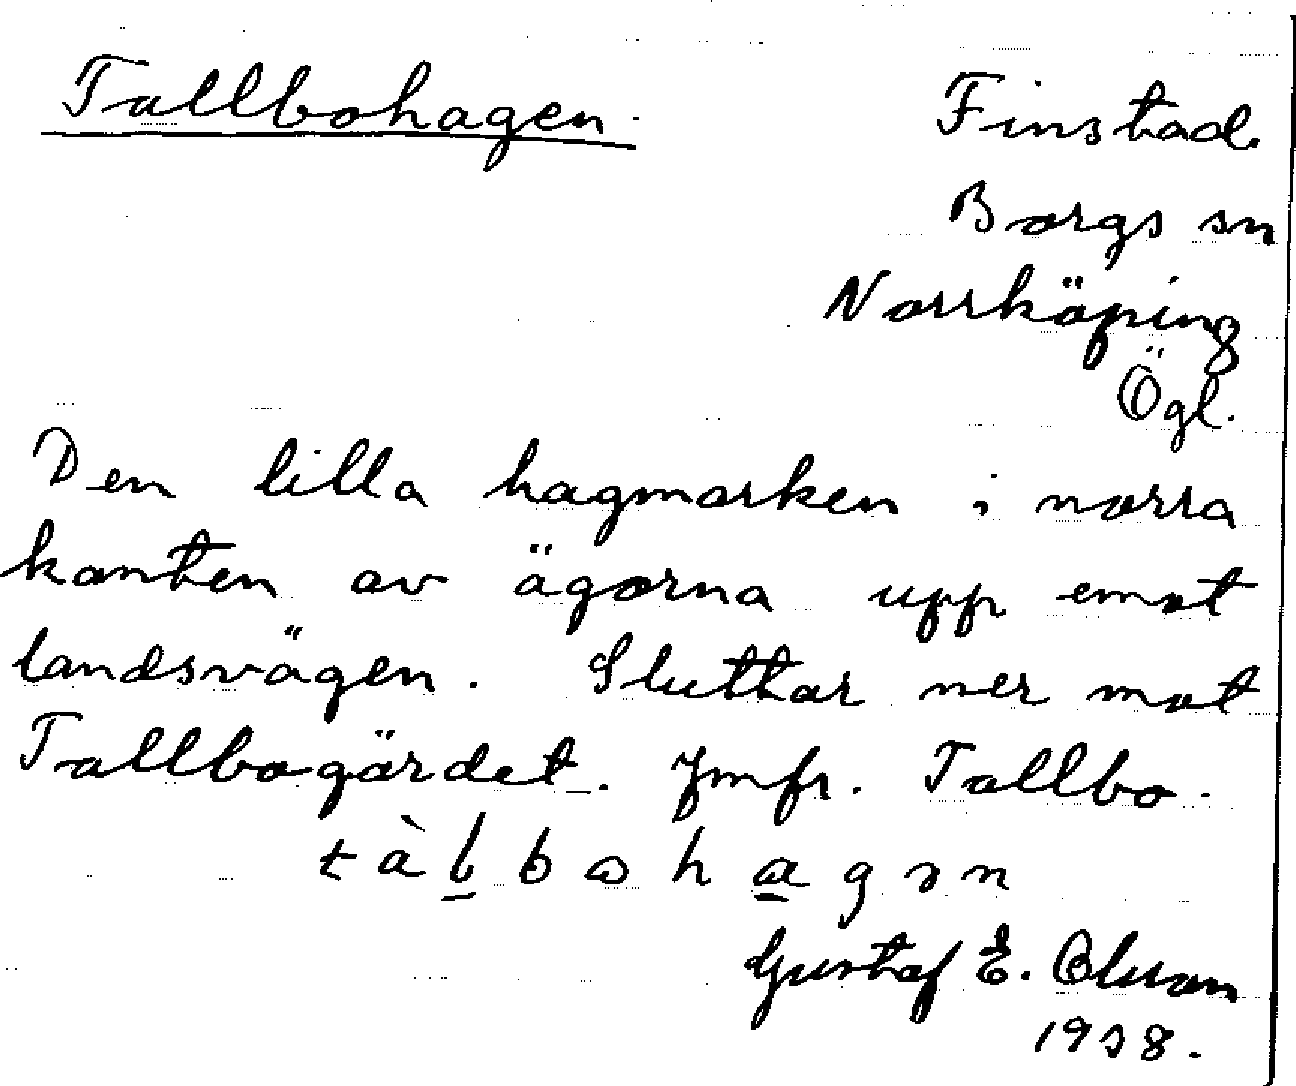 Tallbohagen.
Finstad.
Borgs sn
Norrköping
Ögl.
Den lilla hagmarken i norra
kanten av ägorna upp emot
landsvägen. Sluttar ner mot
Tallbogärdet. Jmfr. Tallbo.
Gustaf E. Olsson